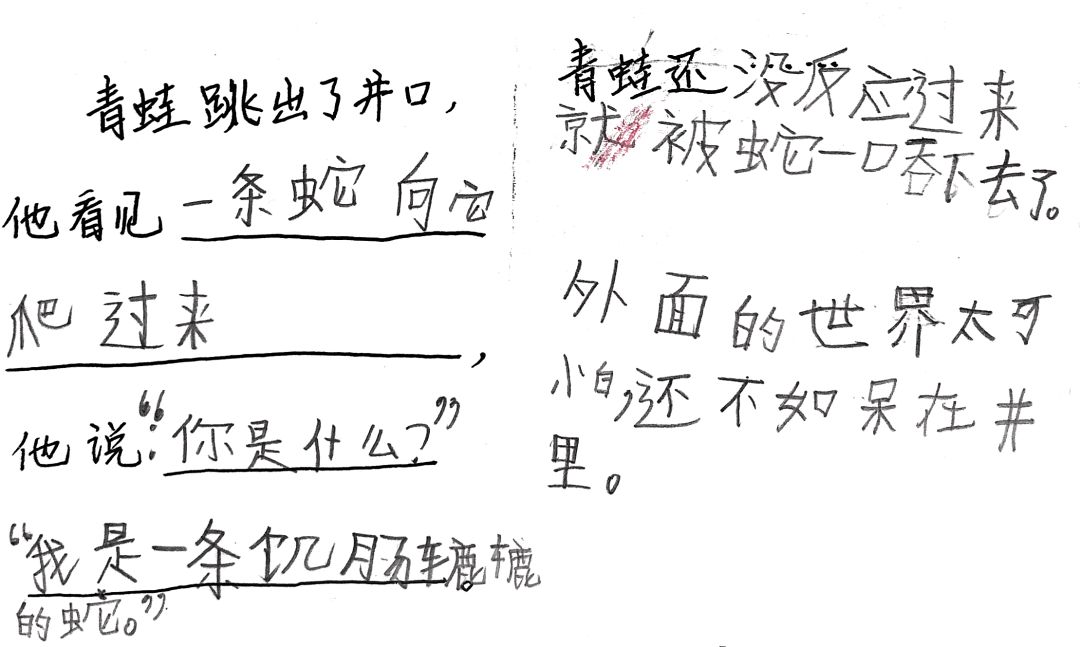 青蛙跳出了井口，
他看见一条蛇向它
爬过来，
他说：“你是什么？”
“我是一条饥肠辘辘
的蛇。”
青蛙还没反应过来
就被蛇一口吞下去了。
外面的世界太可
小白，还不如呆在井
里。